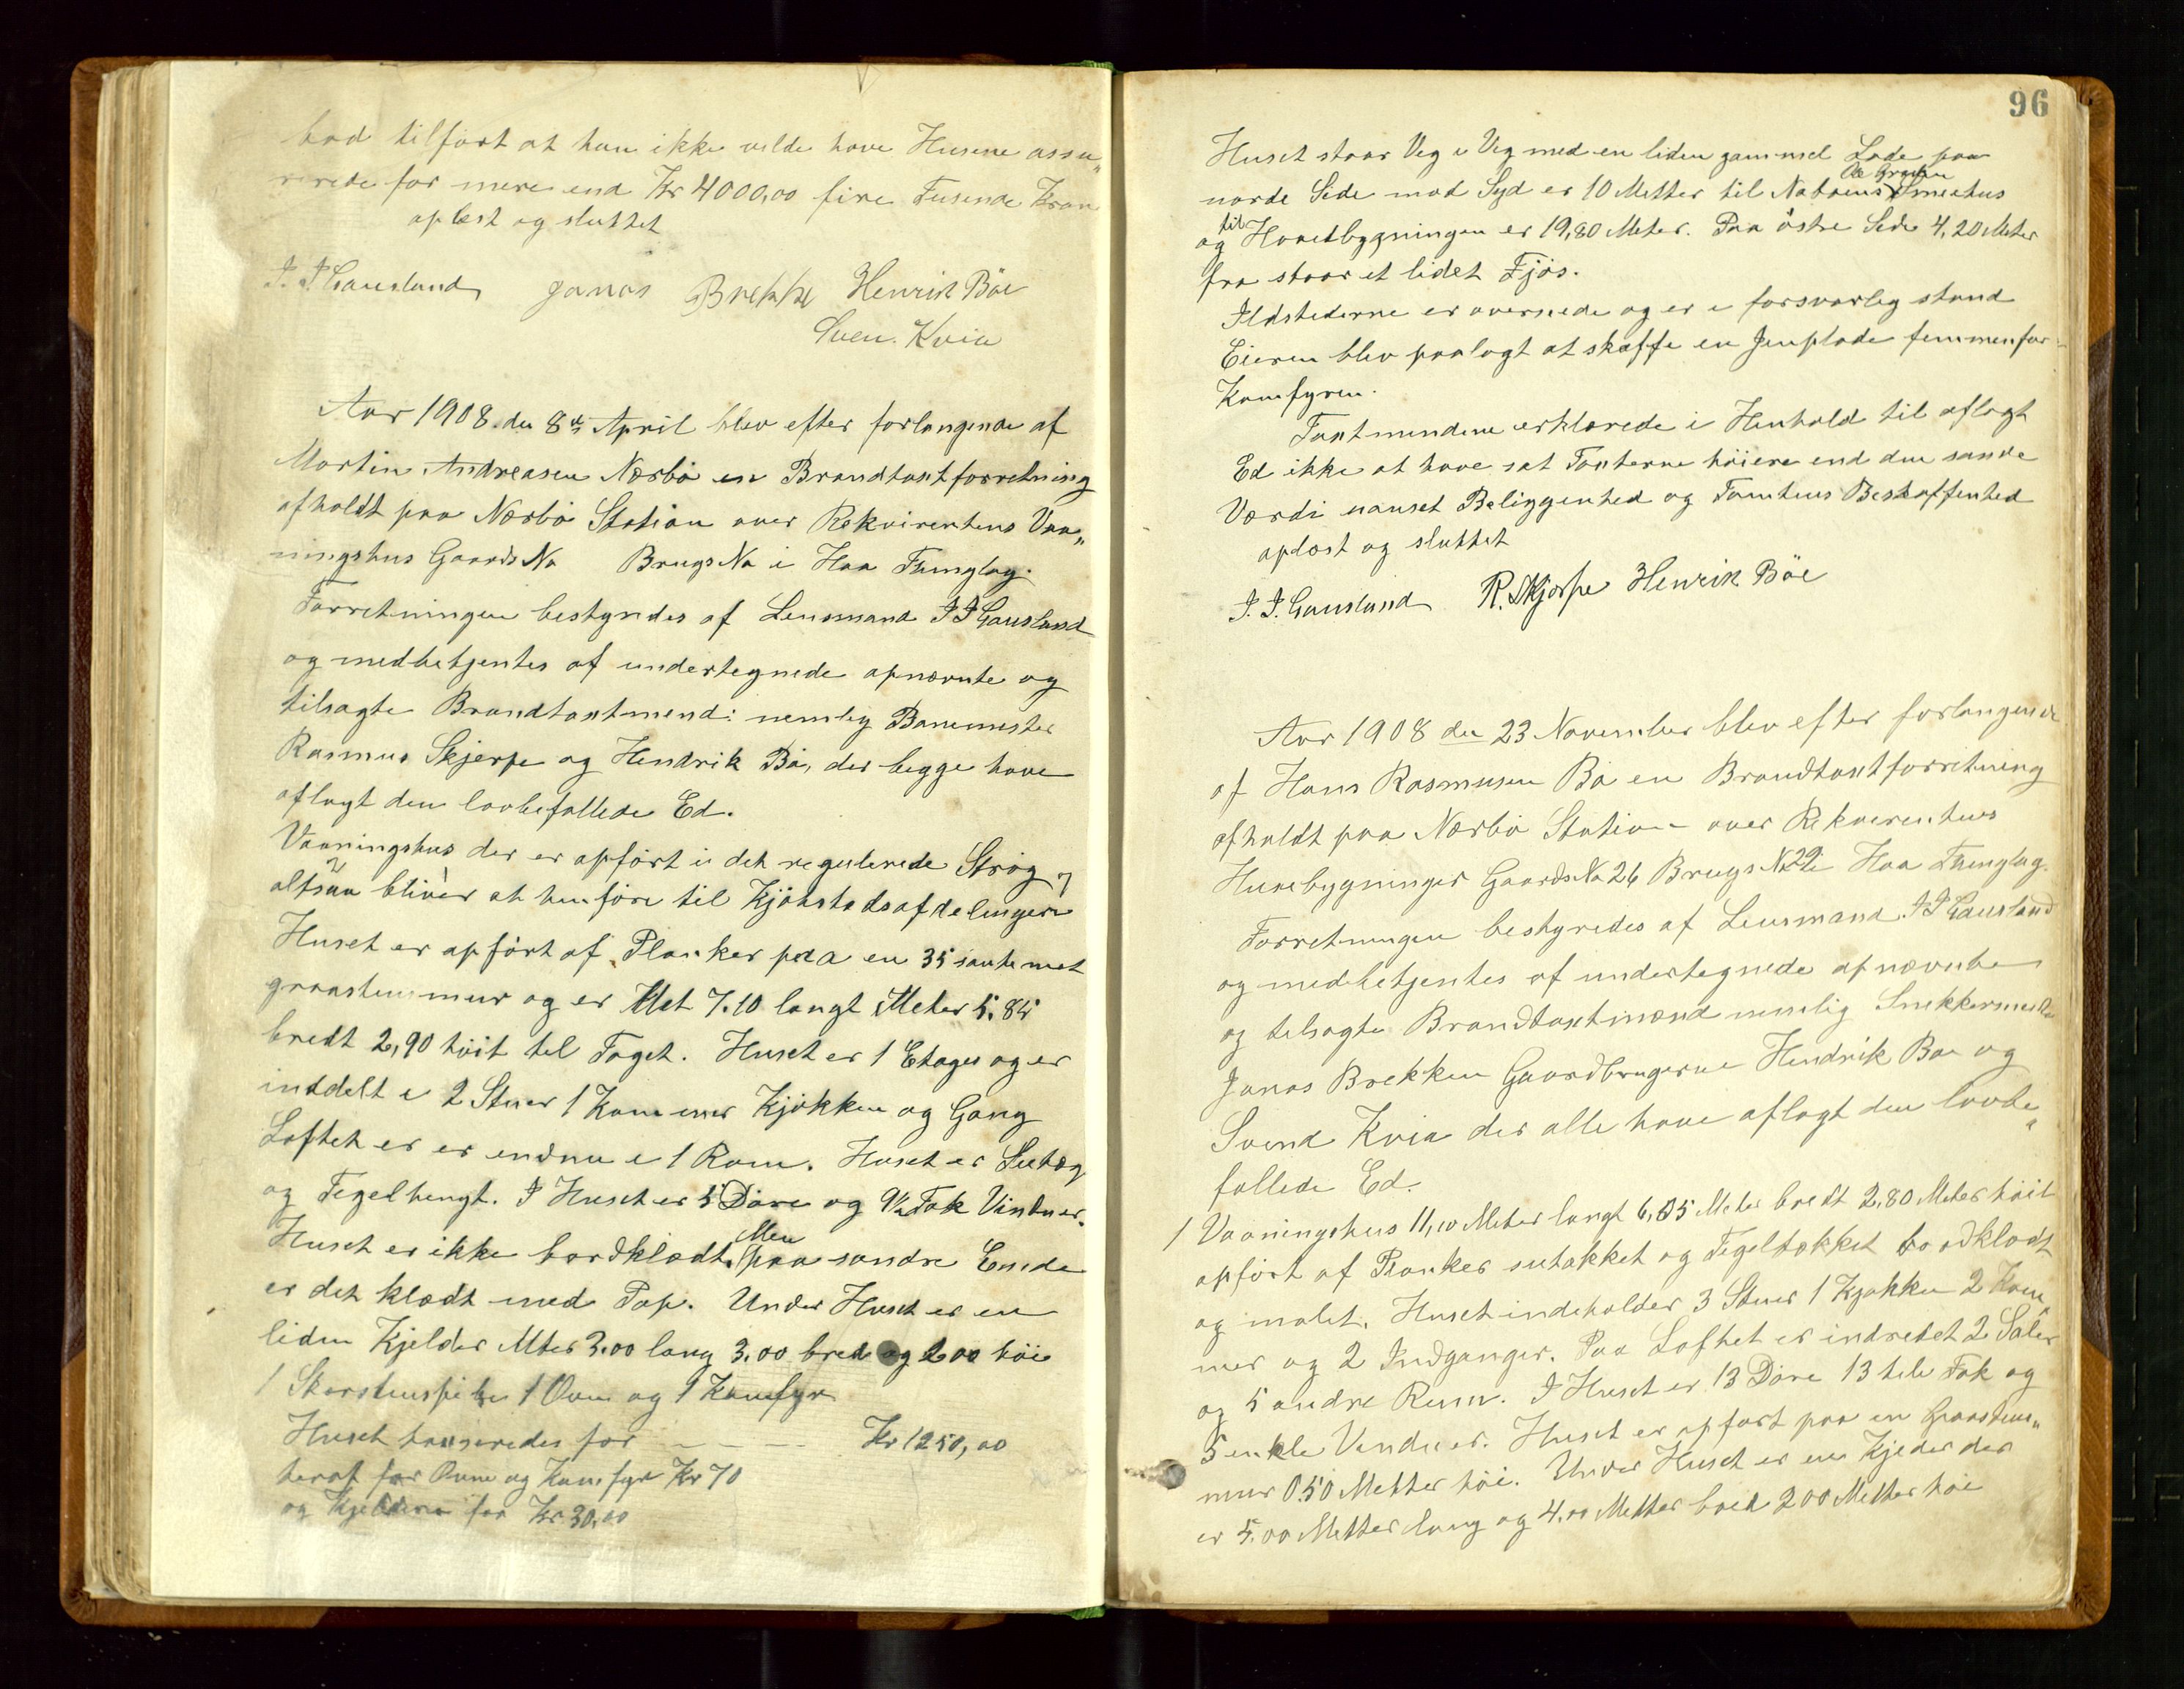 bad tilført at han ikke vilde have Husene assu„
rerede for mere end Kr 4000,00 fire Tusende Kron
oplæst og sluttet
J. J. Gausland Jonas Brekke Henrik Böe
Sven. Kvia
Aar 1908 den 8de April blev efter forlangende af
Martin Andreasen Nærbø en Brandtaxtforretning
afholdt paa Nærbø Station over Rekvirentens Vaa„
ningshus Gaards No Brugs No i Haa Thinglag.
Forretningen bestyredes af Lensmand J J Gausland
og medbetjentes af undertegnede opnævnte og
tilsagte Brandtaxtmend: nemlig Banemester
Rasmus Skjerpe og Hendrik Bø, der begge have
aflagt den lovbefallede Ed.
Vaaningshus der er opført i det regulerede Strøg
altsaa bliver at henføre til Kjøbstadsafdelingen
Huset er opført af Planker paa en 35 santemet
graastensmur og er Met 7.10 langt Meter 5.85
bredt 2,90 høit til Taget. Huset er 1 Etages og er
inddelt i 2 Stuer 1 Kammer Kjøkken og Gang
Loftet er er endnu i 1 Rom. Huset er
og Tegelhengt. I Huset er 5 Døre og 9½ Fak Vinduer.
Huset er ikke bordklædt. Men paa søndre Ende
er det klædt med Pap. Under Huset er en
liden Kjelder Mter 3.00 lang 3.00 bred og 2.00 höi
1 Skorstenspibe 1 Ovn og 1 Komfyr
Huset taxseredes for — — — — Kr 1250,00
heraf for Ovne og Komfyr Kr 70
og Kjelderen for Kr 30,00
96
Huset staar Veg i Veg med en liden gammel Lade paa
norde Side mod Syd er 10 Metter til Naboens Smiehus
og til Hovedbygningen er 19,80 Meter. Paa östre Side 4,20 Meter
fra staar et lidet Fjös.
Ildstederne er overseede og er i forsvarlig stand
Eieren blev paalagt at skaffe en Jenplade femmen for
Komfyren.
Taxtmendene erklærede i Henhold til aflagt
Ed ikke at have sat Taxterne höiere end den sande
Værdi uanset Beliggenhed og Tomtens Beskaffenhed
oplæst og sluttet
J. J. Gausland R. Skjerpe Henrik Böe
Aar 1908 den 23 November blev efter forlangende
af Hans Rasmusen Bø en Brandtaxtforretning
afholdt paa Nærbø Station over Rekverentens
Husebygninger Gaards No 26 Brugs No 22 i Haa Thinglag.
Forretningen bestyredes af Lensmand J J Gausland
og medbetjentes af undertegnede opnævnte
og telsagte Brandtaxtmænd nemlig Snekkermester
Jonas Brekken Gaardbrugerne Hendrik Bøe og
Svend Kvia der alle have aflagt den lovbe„
fallede Ed.
1 Vaaningshus 11,10 Meter langt 6,05 Meter bredt 2,80 Meter höit
opført af Planker sutakket og Tegeltækket bordklædt
og malet. Huset indeholder 3 Stuer 1 Kjøkken 2 Kam„
mer og 2 Indganger. Paa Loftet er indredet 2 Saler
og 5 andre Rum. I Huset er 13 Döre 13 hele Fak og
5 enkle Vinduer. Huset er opført paa en Graastens„
mur 0.50 Metter höi. Under Huset er en Kjeder der
er 5.00 Metter lang og 4.00 Metter bred 2.00 Metter höi